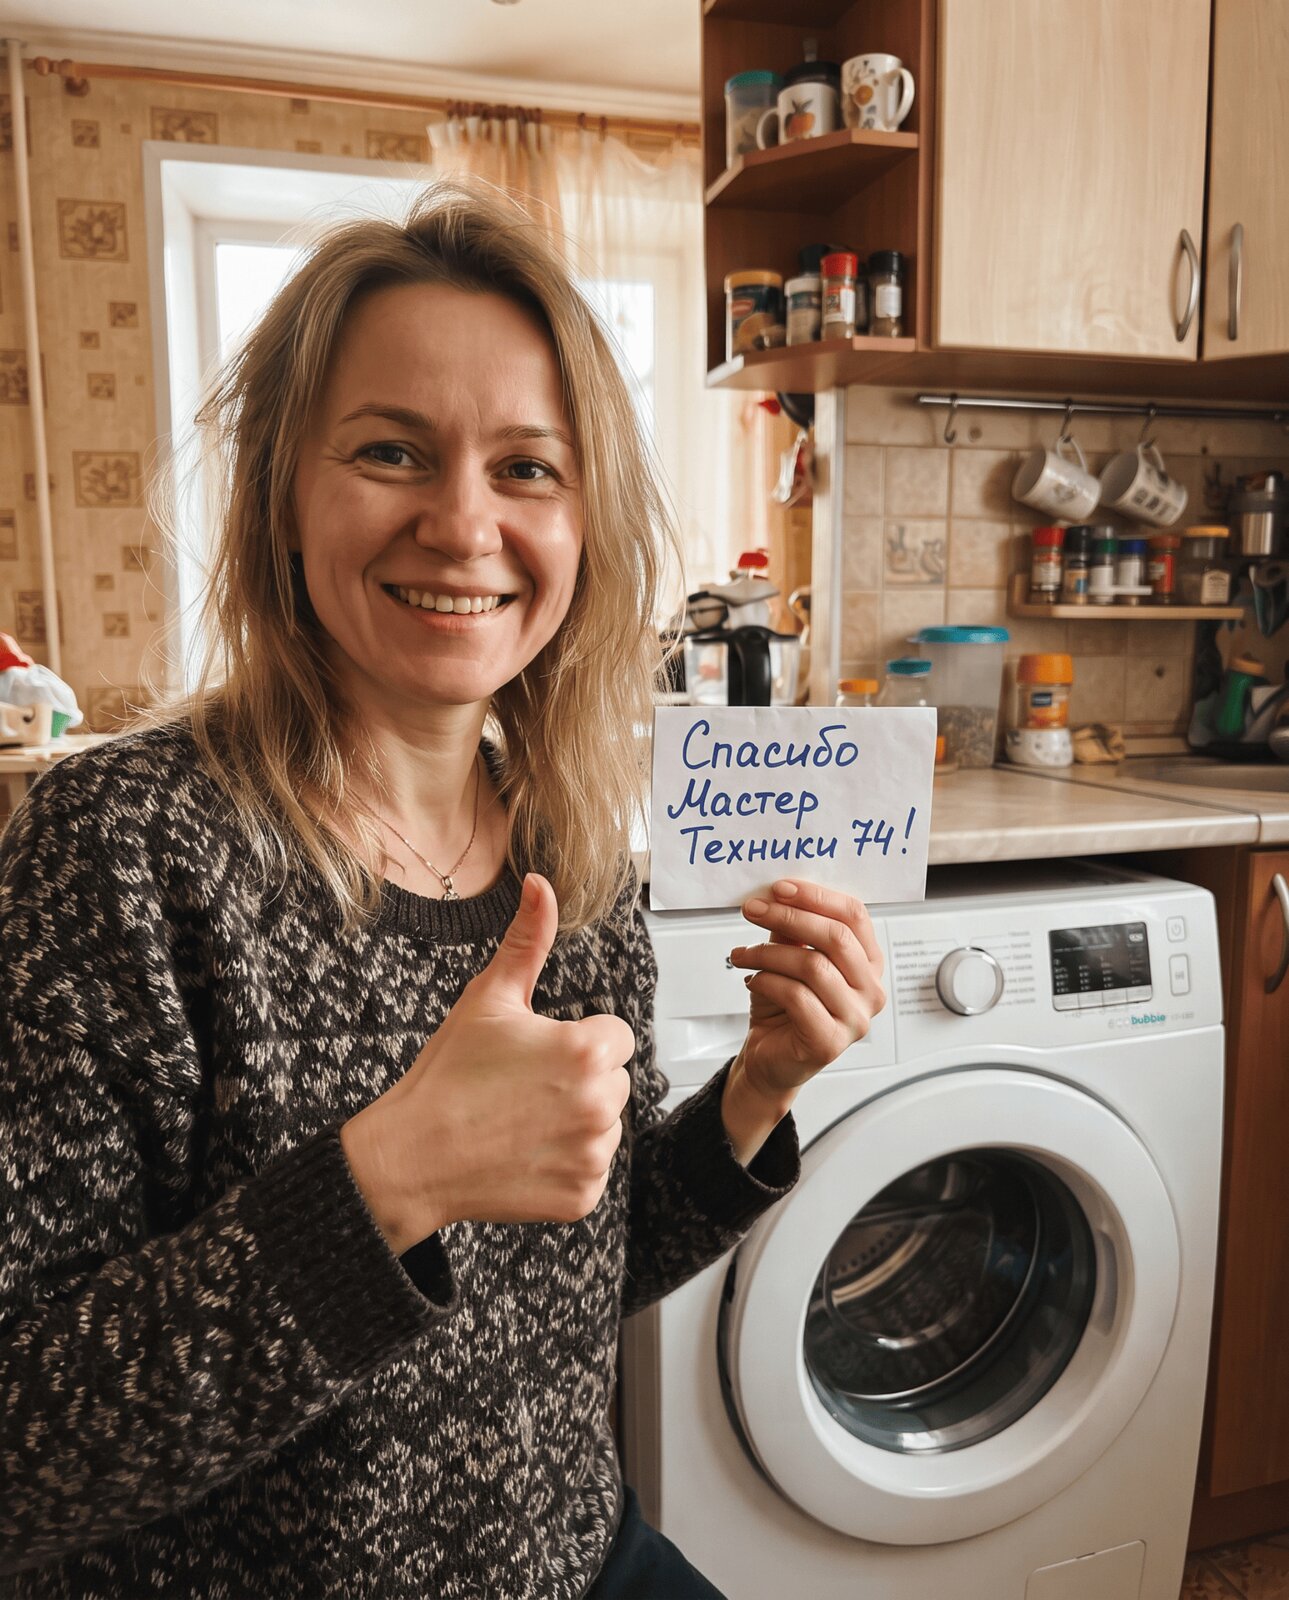 Спасибо
Мастер
Техники 74!
ecobubble